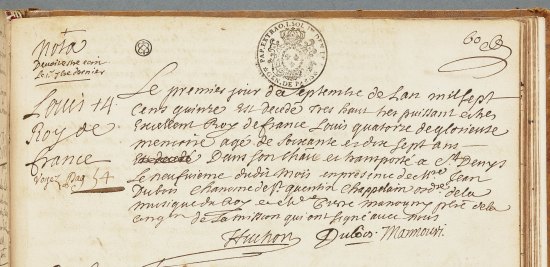 Nota
60
Louis 14
Roy de
france
Voyez Pag 54
Le premier jour de septembre de Lan mil sept
Cens quinze est decedé tres haut tres puissant et tres
Excellent Roy de france Louis quatorze de glorieuse
memoire agé de soixante et dix sept ans
Dans son chateau et transporté a St Denys
Le neufvieme dudit mois en presence de Mre Jean
Dubois Chanoine de St quentin Chappelain ordre de la
musique du Roy et de Mre pbre de la
Congon de La mission qui ont signé avec nous
Huchon Dubois Mannoury